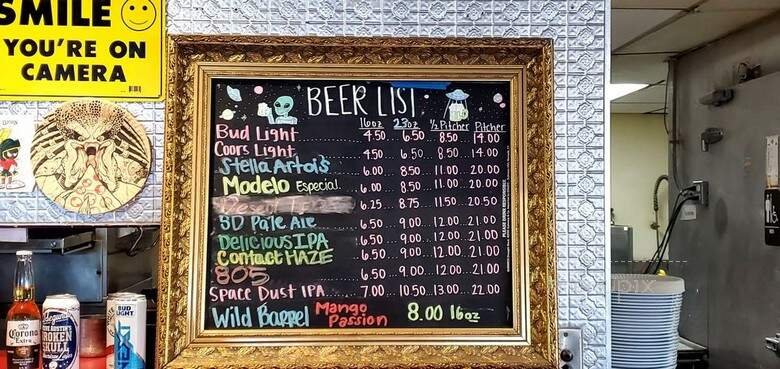 SMILE
YOU'RE ON
CAMERA
BEER LIST
16oz 23oz 1/2 Pitcher Pitcher
Bud Light 4.50 6.50 8.50 14.00
Coors Light 4.50 6.50 8.50 14.00
Stella Artois 6.00 8.50 11.00 20.00
Modelo Especial 6.00 8.50 11.00 20.00
6.25 8.75 11.50 20.50
SD Pale Ale 6.50 9.00 12.00 21.00
Delicious IPA 6.50 9.00 12.00 21.00
Contact HAZE 6.50 9.00 12.00 21.00
805 6.50 9.00 12.00 21.00
Space Dust IPA 7.00 10.50 13.00 22.00
Wild Barrel Mango Passion 8.00 16oz
Corona
Extra
BROKEN
SKULL
BUD
LIGHT
NEXT